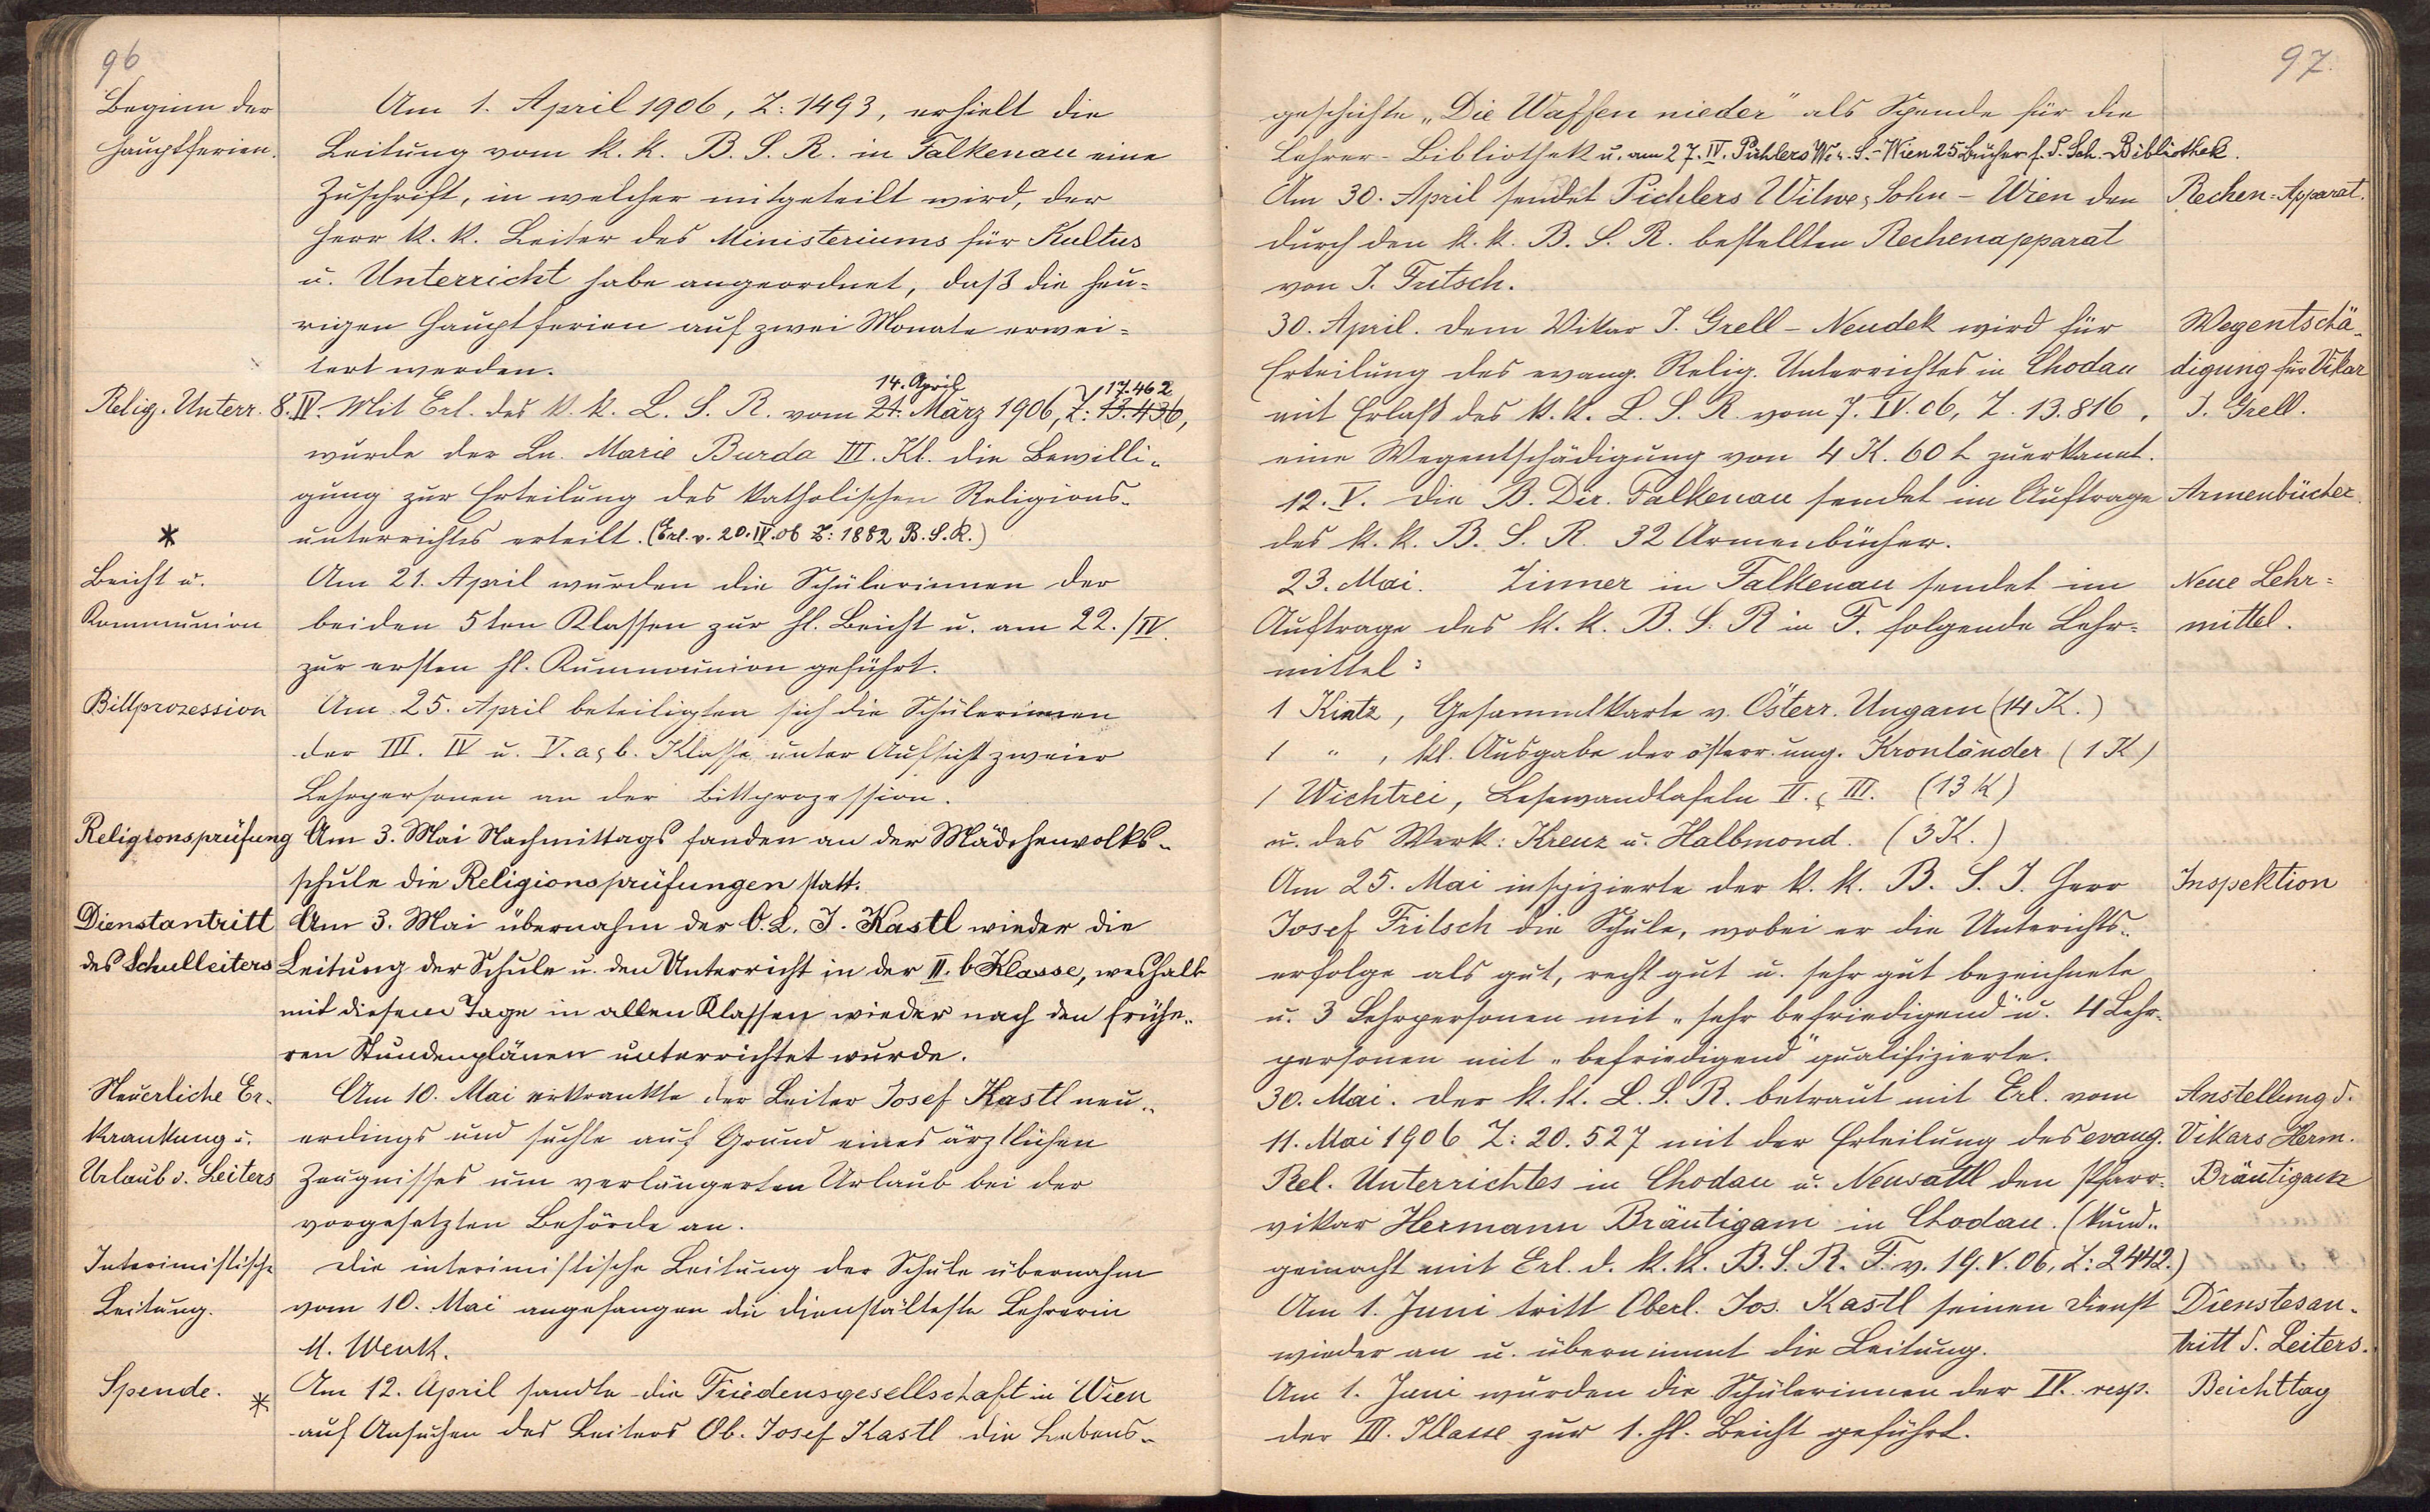 96
Beginn der
Hauptferien.
Am 1. April 1906, Z: 1493, erhielt die
Leitung vom k. k. B. S. R. in Falkenau eine
Zuschrift, in welcher mitgeteilt wird, der
Herr k. k. Leiter des Ministeriums für Kultus
u. Unterricht habe angeordnet, daß die heu-
rigen Hauptferien auf zwei Monate erwei-
tert werden.
14. April 17.462
Relig. Unterr. 8. IV. Mit Erl. des k. k. L. S. R. vom 21. März 1906, Z: 13.436,
wurde der Ln. Marie Burda III. Kl. die Bewilli-
gung zur Erteilung des katholischen Religions-
* unterrichtes erteilt. (Erl. v. 20. IV. 06 Z: 1882 B. S. R.)
Beicht u.
Kommunion
Am 21. April wurden die Schülerinnen der
beiden 5ten Klassen zur hl. Beicht u. am 22./IV.
zur ersten hl. Kummunion geführt.
Bittprozession
Am 25. April beteiligten sich die Schülerinnen
der III. IV u. V. a & b. Klasse unter Aufsicht zweier
Lehrpersonen an der Bittprozession.
Religionsprüfung
Am 3. Mai Nachmittags fanden an der Mädchenvolks-
schule die Religionsprüfungen statt.
Dienstantritt
des Schulleiters
Am 3. Mai übernahm der O. L. J. Kastl wieder die
Leitung der Schule u. den Unterricht in der II. b Klasse, weshalb
mit diesem Tage in allen Klassen wieder nach den frühe-
ren Stundenplänen unterrichtet wurde.
Neuerliche Er-
krankung u.
Urlaub d. Leiters
Am 10. Mai erkrankte der Leiter Josef Kastl neu-
erdings und suchte auf Grund eines ärztlichen
Zeugnisses um verlängerten Urlaub bei der
vorgesetzten Behörde an.
Interimistische
Leitung.
Die interimistische Leitung der Schule übernahm
vom 10. Mai angefangen die dienstälteste Lehrerin
M. Wenk.
Spende. *
Am 12. April sandte die Friedensgesellschaft in Wien
auf Ansuchen des Leiters Ob. Josef Kastl die Lebens-
97.
geschichte „Die Waffen nieder" als Spende für die
Lehrer-Bibliothek u. am 27. IV. Pichlers W. & S.-Wien 25 Bücher f. d. Sch.-Bibliothek.
Am 30. April sendet Pichlers Witwe & Sohn - Wien den
durch den k. k. B. S. R. bestellten Rechenapparat
von J. Fritsch.
Rechen-Apparat.
30. April. Dem Vikar J. Grell - Neudek wird für
Erteilung des evang. Relig. Unterrichtes in Chodau
mit Erlaß des k. k. L. S. R. vom 7. IV. 06, Z. 13.816,
eine Wegentschädigung von 4 K. 60 h zuerkannt.
Wegentschä-
digung für Vikar
J. Grell.
12. V. Die B. Dir. Falkenau sendet im Auftrage
des k. k. B. S. R. 32 Armenbücher.
Armenbücher.
23. Mai. Zinner in Falkenau sendet im
Auftrage des k. k. B. S. R in F. folgende Lehr-
mittel:
Neue Lehr-
mittel.
1 Kintz, Gesammtkarte v. Österr. Ungarn (14 K.)
1 " , kl. Ausgabe der österr. ung. Kronländer (1 K)
1 Wichtrei, Lesewandtafeln II. & III. (13 K)
u. das Werk: Kreuz u. Halbmond. (3 K.)
Am 25. Mai inspizierte der k. k. B. S. J. Herr
Josef Fritsch die Schule, wobei er die Unterichts-
erfolge als gut, recht gut u. sehr gut bezeichnete
u. 3 Lehrpersonen mit „sehr befriedigend" u. 4 Lehr-
personen mit „befriedigend" qualifizierte.
Inspektion
30. Mai. Der k. k. L. S. R. betraut mit Erl. vom
11. Mai 1906 Z: 20.527 mit der Erteilung des evang.
Rel. Unterrichtes in Chodau u. Neusattl den Pfarr-
vikar Hermann Bräutigam in Chodau. (kund-
gemacht mit Erl. d. k. k. B. S. R. F. v. 19. V. 06, Z: 2442.)
Anstellung d.
Vikars Herm.
Bräutigam
Am 1. Juni tritt Oberl. Jos. Kastl seinen Dienst
wieder an u. übernimmt die Leitung.
Dienstesan-
tritt d. Leiters.
Am 1. Juni wurden die Schülerinnen der IV. resp.
der III. Klasse zur 1. hl. Beicht geführt.
Beichttag